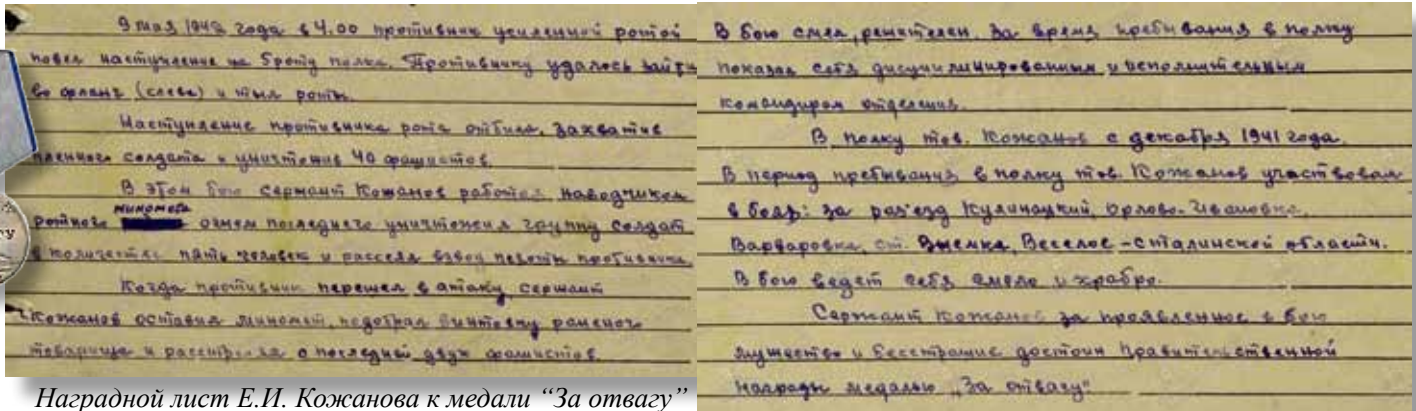 9 мая 1942 года в 4.00 противник усиленной ротой
повел наступление на 5 роту полка. Противнику удалось зайти
во фланг (слева) и тыл роты.
Наступление противника рота отбила, захватив
пленного солдата и уничтожив 40 фашистов.
В этом бою сержант Кожанов работал наводчиком
миномета
ротного огнем последнего уничтожил группу солдат
в количестве пять человек и рассеял взвод пехоты противника
Когда противник перешел в атаку, сержант
Кожанов оставил миномет, подобрал винтовку раненого
товарища и расстрелял последней двух фашистов.
Наградной лист Е.И. Кожанова к медали “За отвагу”
В бою смел, решителен. За время пребывания в полку
показал себя дисциплинированным и исполнительным
командиром отделения.
В полку тов. Кожанов с декабря 1941 года.
В период пребывания в полку тов. Кожанов участвовал
в боях: за раз'езд Кулинацкий, Орлово-Ивановка,
Варваровка, ст. Выемка, Веселое - Сталинской области.
В бою ведет себя смело и храбро.
Сержант Кожанов за проявленное в бою
мужество и бесстрашие достоин правительственной
награды медалью „За отвагу"